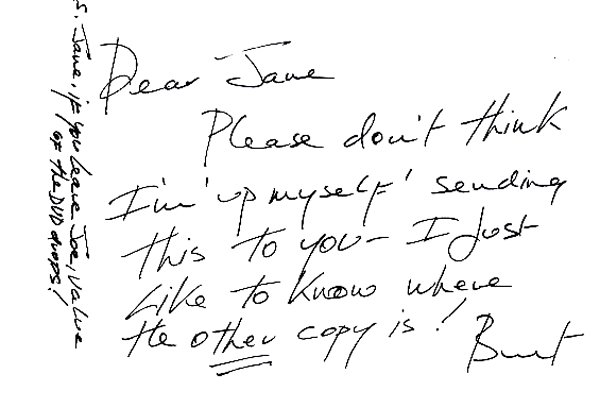 Dear Jane
Please don't think
I'm 'up myself' sending
this to you - I just
like to know where
the other copy is!
Burt
S. Jane, if you leave Joe, value
of the DVD drops!